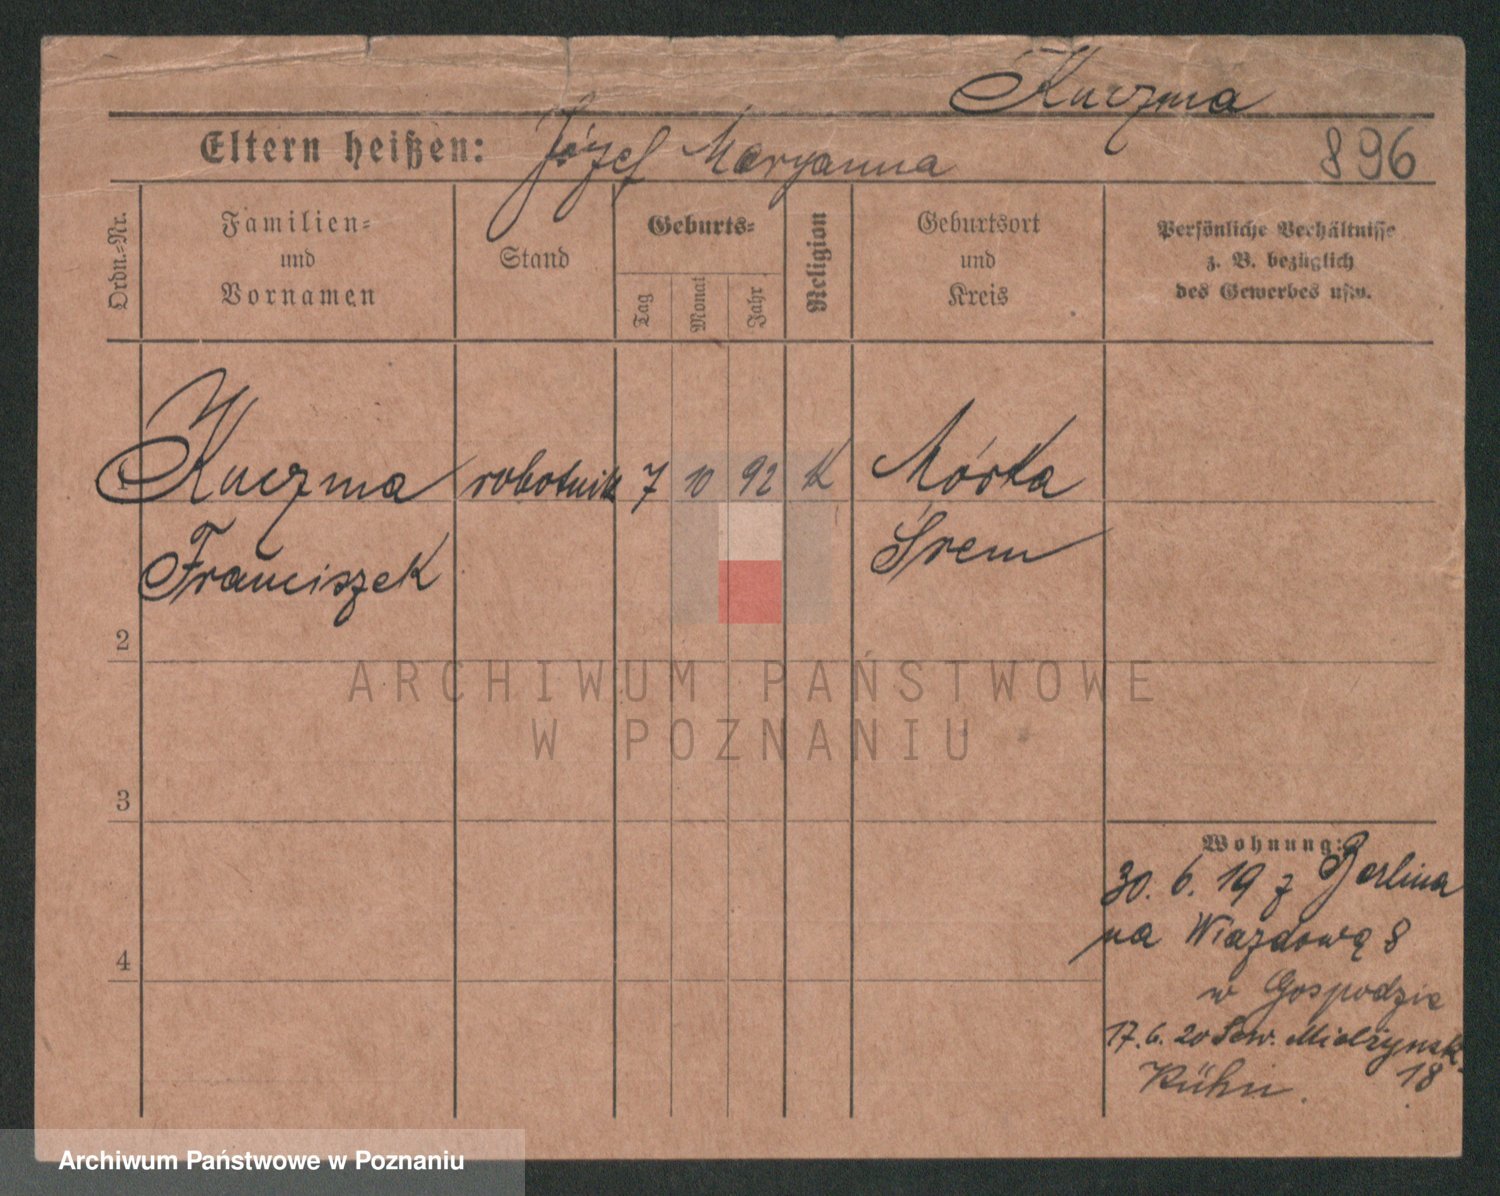 Kuczma
Eltern heißen: Józef Maryanna
896
Ordn.-Nr.
Familien=
und
Vornamen
Stand
Geburts=
Tag
Monat
Jahr
Religion
Geburtsort
und
Kreis
Persönliche Verhältnisse
z. B. bezüglich
des Gewerbes usw.
Kuczma robotnik 7 10 92 K Mórka
Franciszek Śrem
2
3
4
Wohnung:
30. 6. 19 z Berlina
na Wiazdową 8
w Gospodzie
17. 6. 20 Sew. Mielżynsk.
18
Kühn.
ARCHIWUM PAŃSTWOWE
W POZNANIU
Archiwum Państwowe w Poznaniu